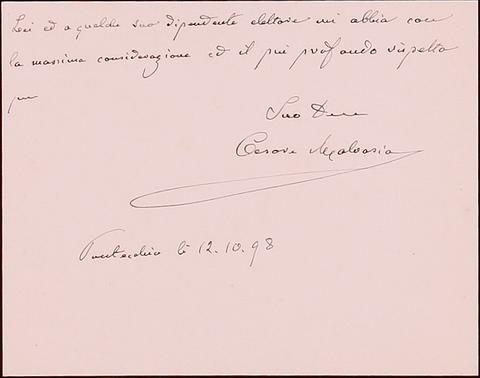 Lei ed a qualche suo dipendente elettore mi abbia con
la massima considerazione ed il più profondo rispetto
per
Suo Dev
Cesare Malvasia
Pontecchio lì 12.10.98